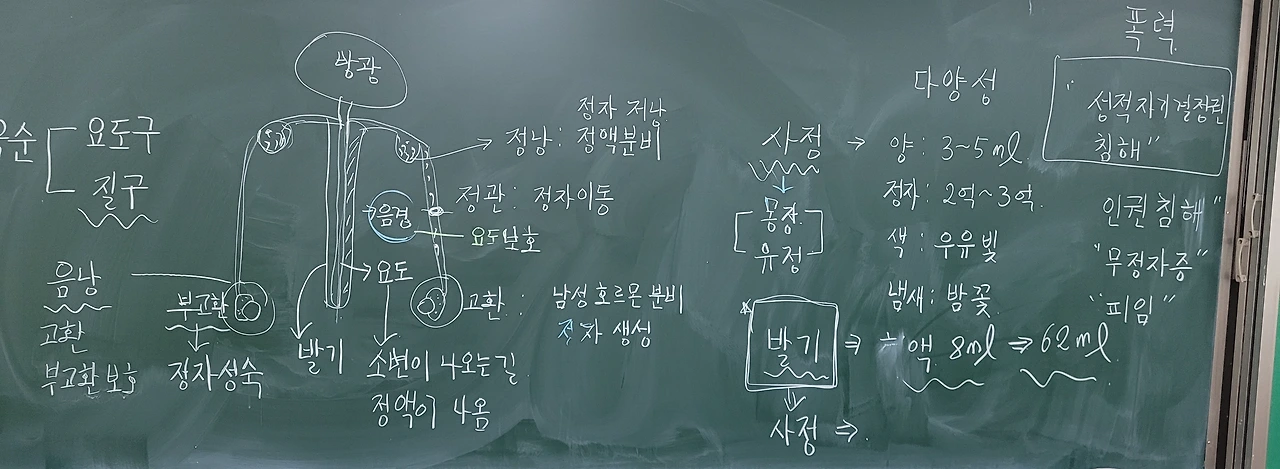 요도구
질구
음낭
고환
부고환보호
방광
부고환
정자성숙
발기
음경
요도보호
요도
소변이 나오는길
정액이 나옴
정자 저낭
정낭: 정액분비
정관: 정자이동
고환: 남성호르몬 분비
정자 생성
사정 →
몽정
유정
발기 ⇒
사정 ⇒
다양성
양: 3~5ml
정자: 2억~3억.
색: 우유빛
냄새: 밤꽃
혈액 8ml ⇒ 62ml
폭력
"성적자기결정권
침해"
인권침해"
"무정자증"
"피임"